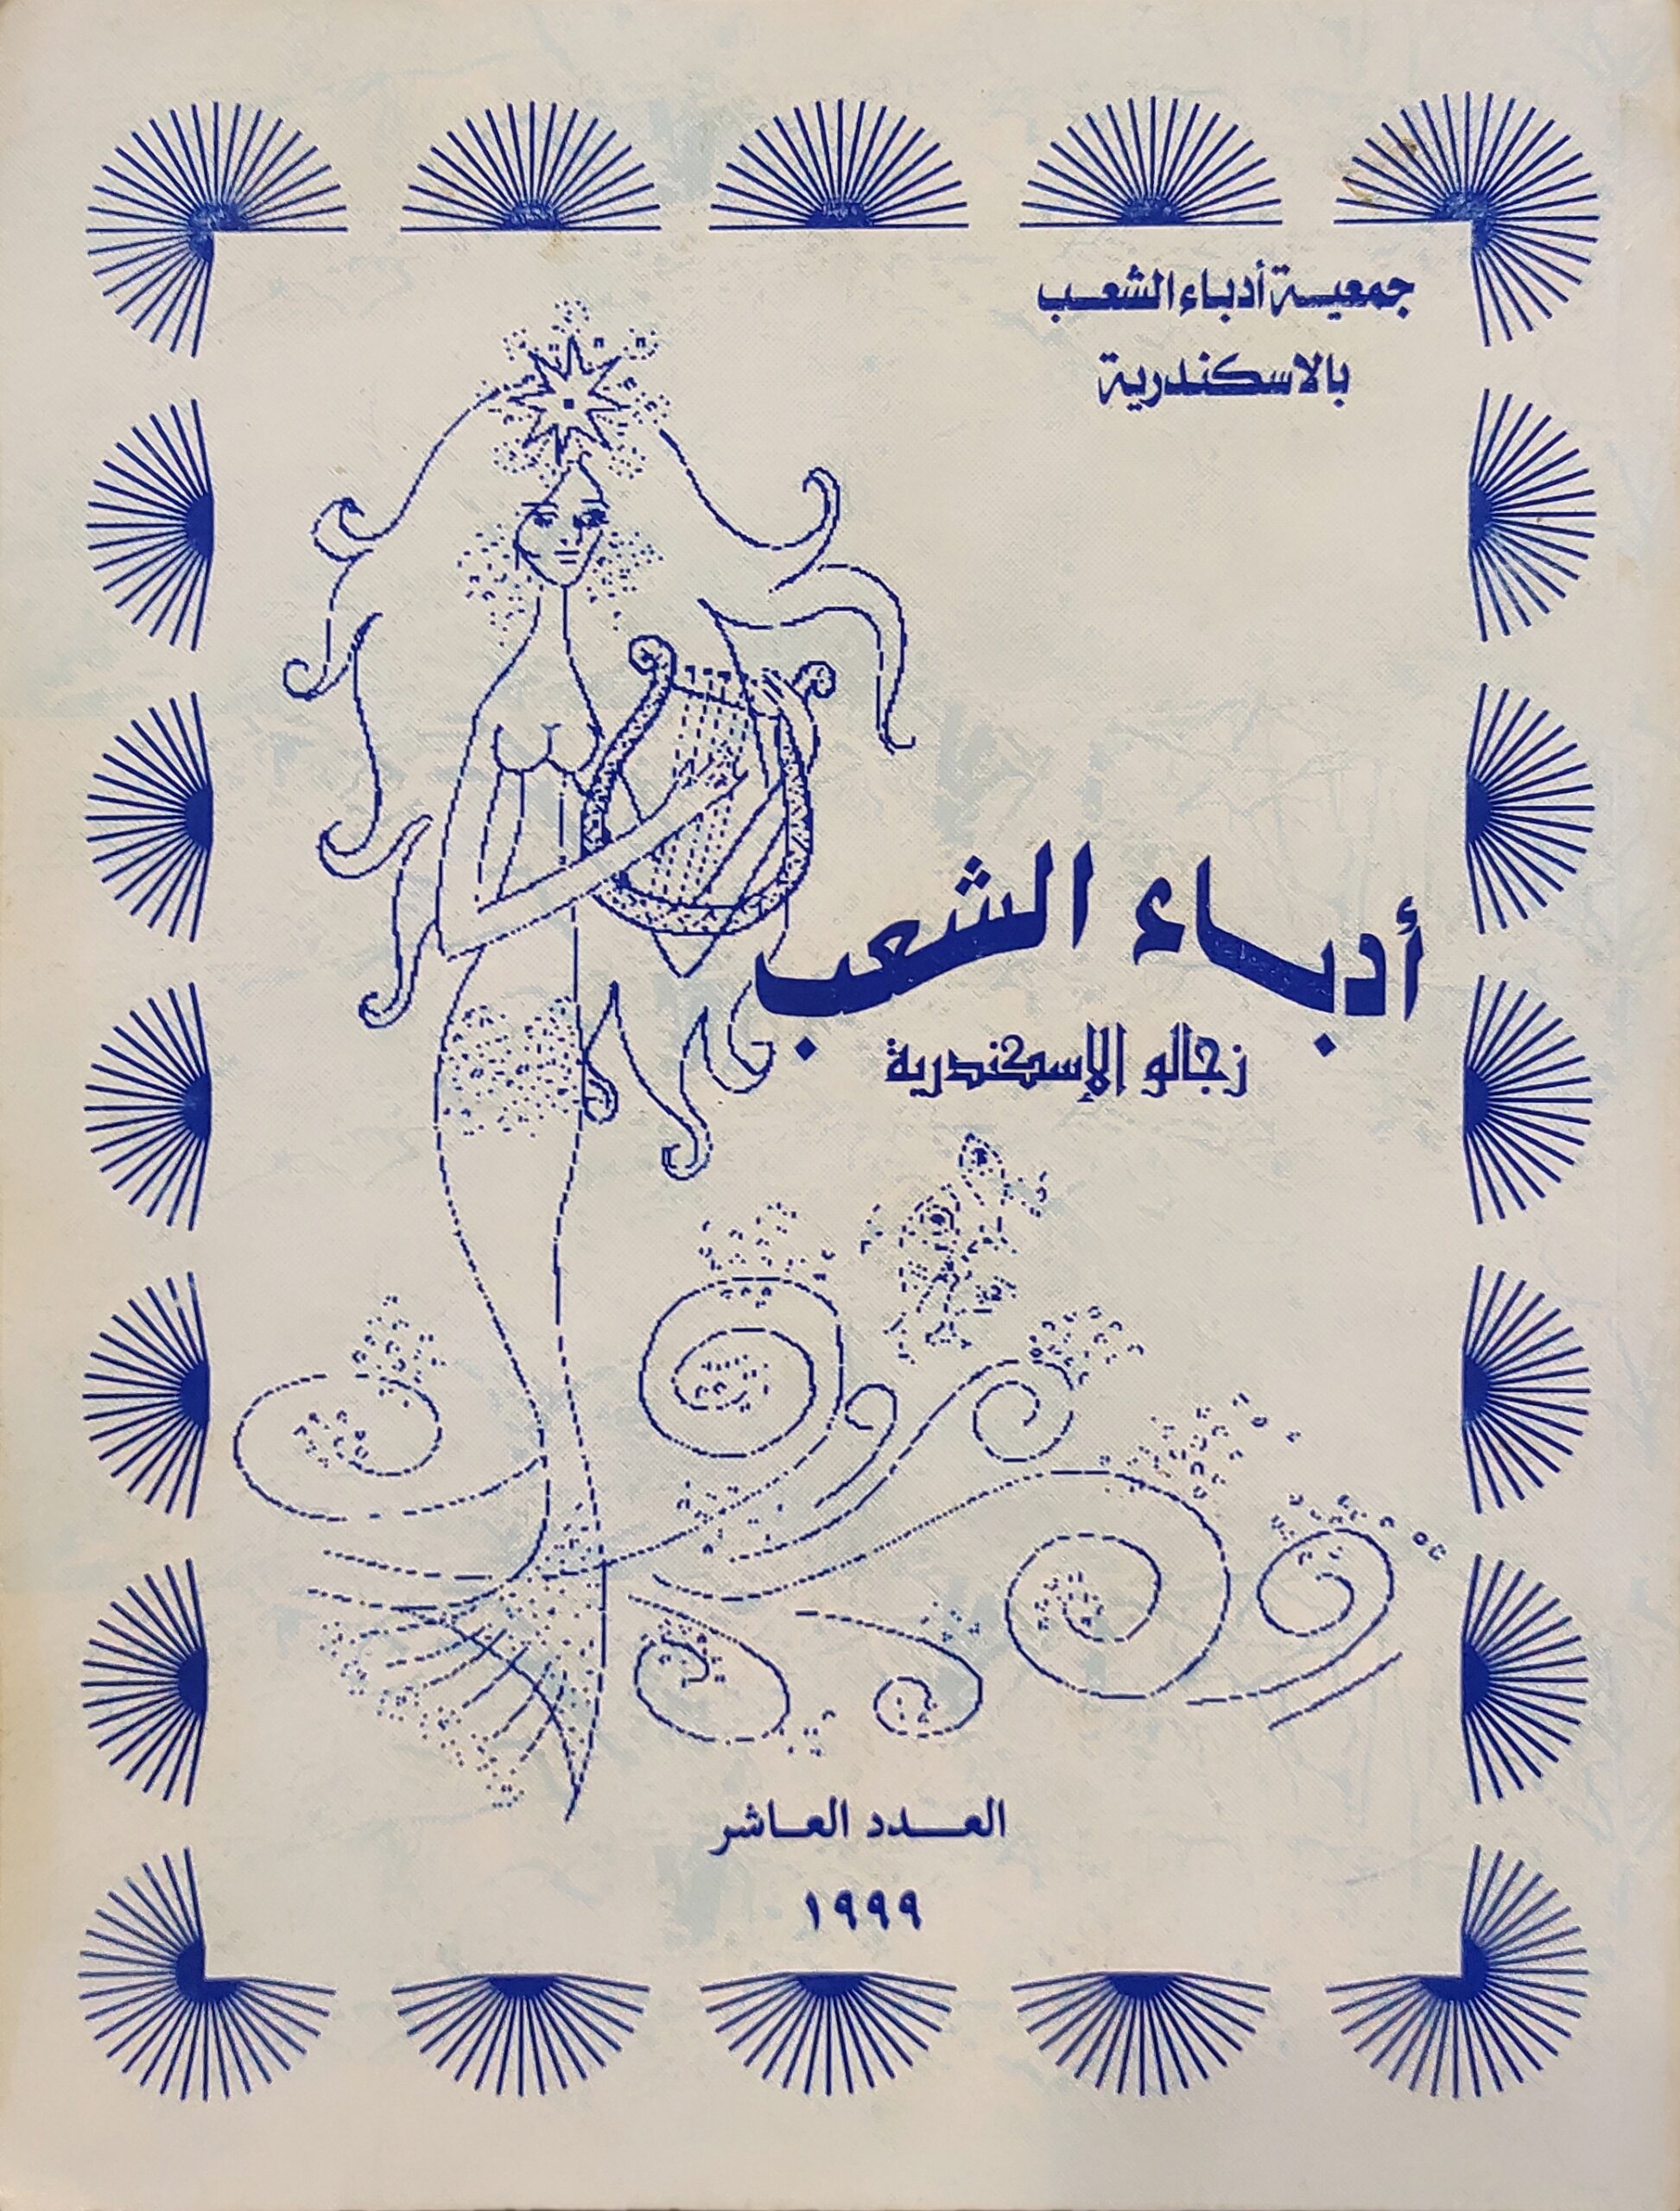 جمعية أدباء الشعب
بالاسكندرية
أدباء الشعب
زجالو الإسكندرية
العدد العاشر
١٩٩٩